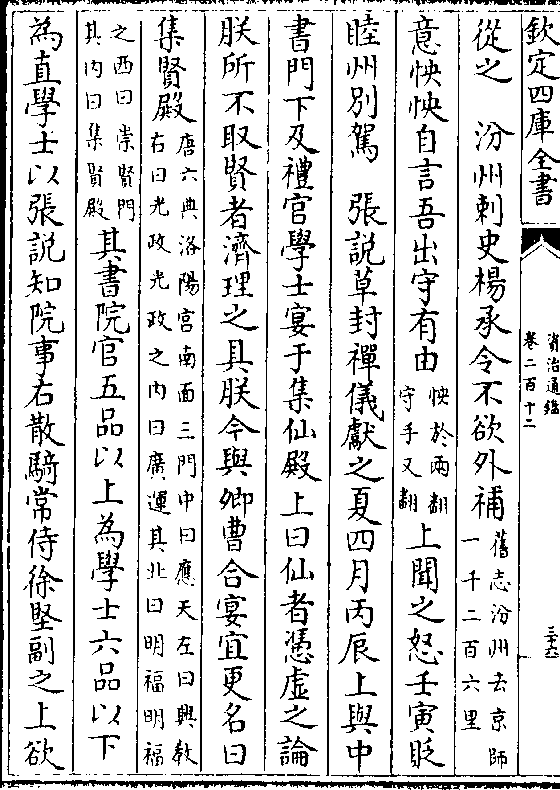 欽定四庫全書
資治通鑑
卷二百十二
從之　汾州刺史楊承令不欲外補舊志汾州去京師
一千二百六里
意怏怏自言吾出守有由怏於兩翻
守手又翻上聞之怒壬寅貶
睦州別駕　張說草封禪儀獻之夏四月丙辰上與中
書門下及禮官學士宴于集仙殿上曰仙者憑虚之論
朕所不取賢者濟理之具朕今與卿曹合宴宜更名曰
集賢殿唐六典洛陽宮南面三門中曰應天左曰興教
右曰光政光政之内曰廣運其北曰明福明福
之西曰崇賢門
其内曰集賢殿其書院官五品以上為學士六品以下
為直學士以張說知院事右散騎常侍徐堅副之上欲